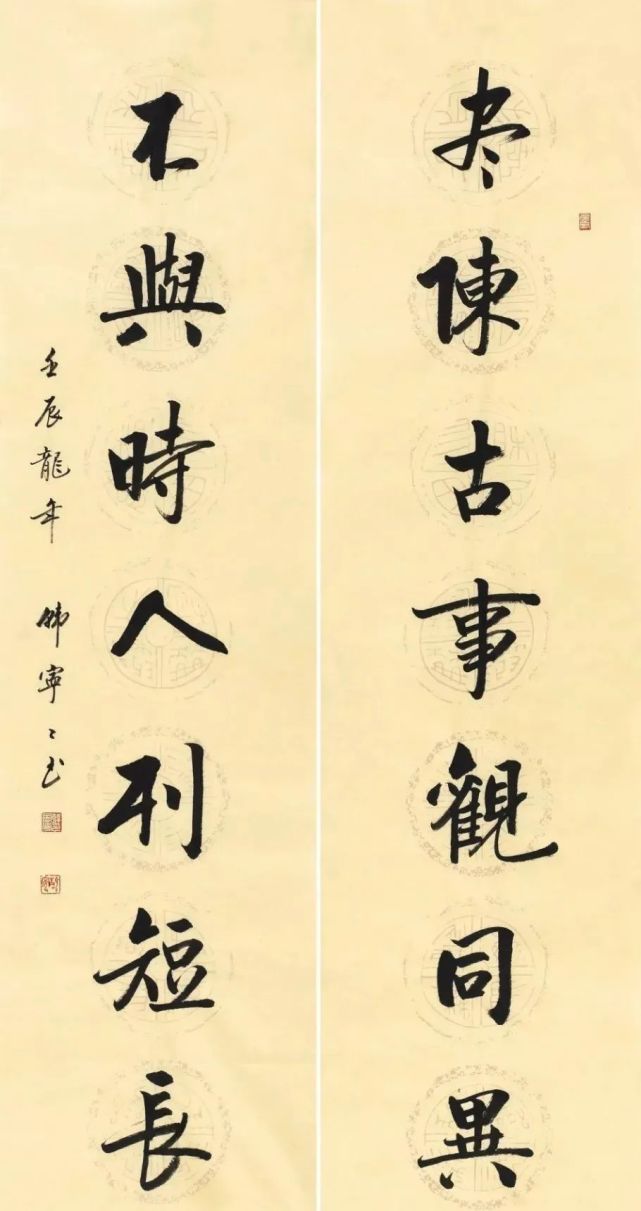 尽陳古事觀同異
不與時人刊短長
壬辰龍年 韩寧〻书